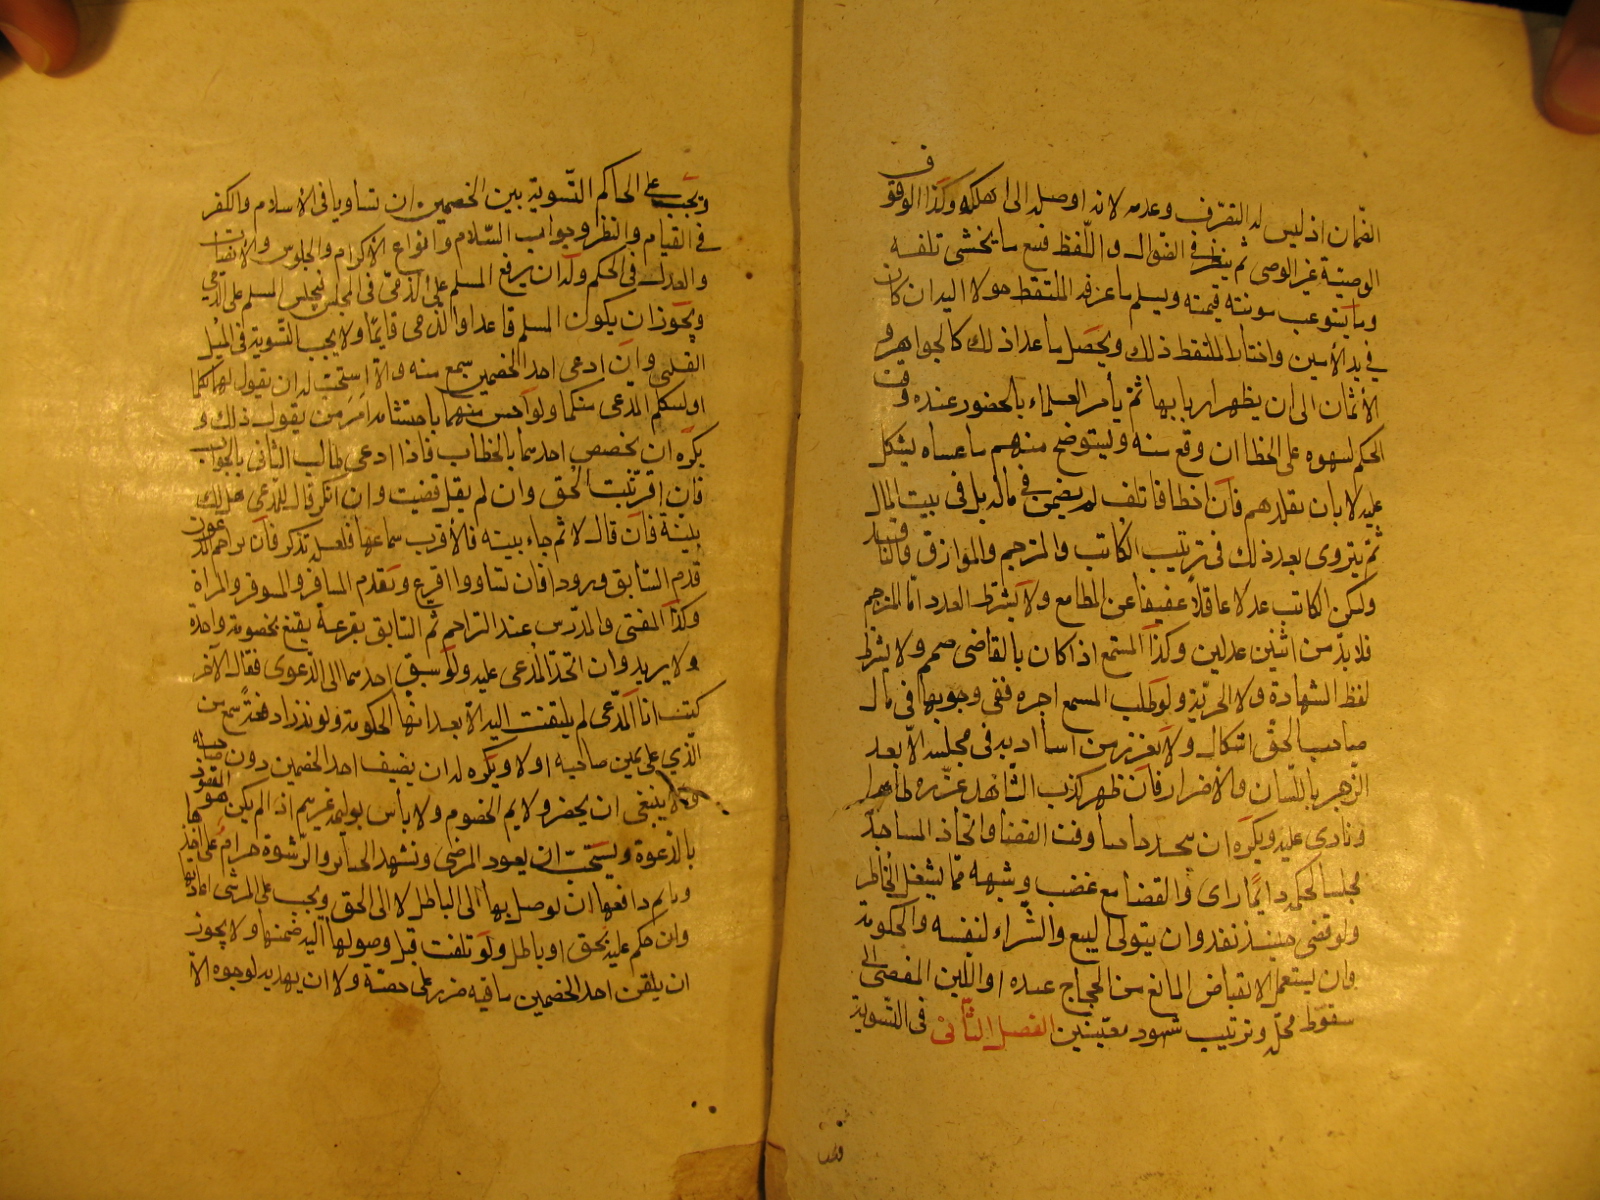 الضمان اذ ليس له التصرف وعدمه لانه اوصله الى اهله وكذا الوقوف
الوصية غير الوصي ثم ينظر في الضوال واللقطة فيبيع ما يخشى تلفه
وما يستوعب مؤنته قيمته ويسلم ما عرفه الملتقط حولا اليه ان كان
في يد الامين واختار الملتقط ذلك ويحصل ما عدا ذلك كالجواهر و
الاثمان الى ان يظهر اربابها ثم يأمر العلماء بالحضور عنده وقت
الحكم لسهوه على الخطأ ان وقع منه وليستوضح منهم ما عساه يشكل
عليه لا بان يقلدهم فان اخطأ فاتلف لم يضمن في ماله بل في بيت المال
ثم يتروى بعد ذلك في ترتيب الكاتب والمترجم والموازق والنافيد
وليكن الكاتب عدلا عاقلا عفيفا عن المطامع ولا يشترط العدد اما المترجم
فلا بد من اثنين عدلين وكذا المستمع اذا كان بالقاضي صمم ولا يشترط
لفظ الشهادة ولا الحرية ولو طلب المسمع اجره ففي وجوبها في مال
صاحب الحق اشكال ولا يعزر من اساء ادبه في مجلسه الا بعد
الزجر باللسان والاضرار فان ظهر كذب الشاهد عزره ظاهرا
ونادى عليه ويكره ان يتخذ حاجبا وقت القضا واتخاذ المساجد
مجلسا لحكمه دايما راى والقضا مع غضب وشبهه مما يشغل الخاطر
ولو قضى حينئذ نفذ وان يتولى البيع والشراء لنفسه والحكومة
وان يستعمل الانقباض المانع من الحجاج عنده او اللين المفضي الى
سقوط محله وترتيب شهود معينين الفصل الثاني في التسوية
ويجب على الحاكم التسوية بين الخصمين ان تساويا في الاسلام والكفر
في القيام والنظر وجواب السلام وانواع الاكرام والجلوس والانصات
والعدل في الحكم وله ان يرفع المسلم على الذمي في المجلس فيجلس المسلم على الذمي
ويجوز ان يكون المسلم قاعدا والذمي قايما ولا يجب التسوية في الميل
القلبي وان ادعى احد الخصمين سمع منه والا استحب له ان يقول لهما تكلما
او ليتكلم المدعي منكما ولو احس منهما باحتشامه امر من يقول ذلك و
يكره ان يخصص احدهما بالخطاب فاذا ادعى طالب الثاني بالجواب
فان اقر ثبت الحق وان لم يقل قضيت وان انكر قال للمدعي هل لك
بينة فان قال لا ثم جاء ببينة فالاقرب سماعها فلعله تذكر فان تزاحم المدعون
قدم السابق ورودا فان تساووا اقرع ويقدم المسافر والمستوفز والمراة
وكذا المفتي والمدرس عند التزاحم ثم السابق بقرعة يقنع بخصومة واحدة
ولا يزيد وان اتحد المدعى عليه ولو سبق احدهما الى الدعوى فقال الاخر
كنت انا المدعي لم يلتفت اليه الا بعد انتها الحكومة ولو تبادرا دفعة سمع من
الذي على يمين صاحبه اولا ويكره له ان يضيف احد الخصمين دون صاحبه
ولا ينبغي ان يحضر ولايم الخصوم ولا بأس بوليمة غيرهم اذا لم يكن هو المقصود
بالدعوة ويستحب ان يعود المرضى وتشهد الجنائز والرشوة حرام على اخذها
وياثم دافعها ان توصل بها الى الباطل لا الى الحق ويجب على المرتشي اعادتها
وان حكم عليه بحق او باطل ولو تلفت قبل وصولها اليه ضمنها ولا يجوز
ان يلقن احد الخصمين ما فيه ضرر على خصمه ولا ان يهديه لوجوه الا